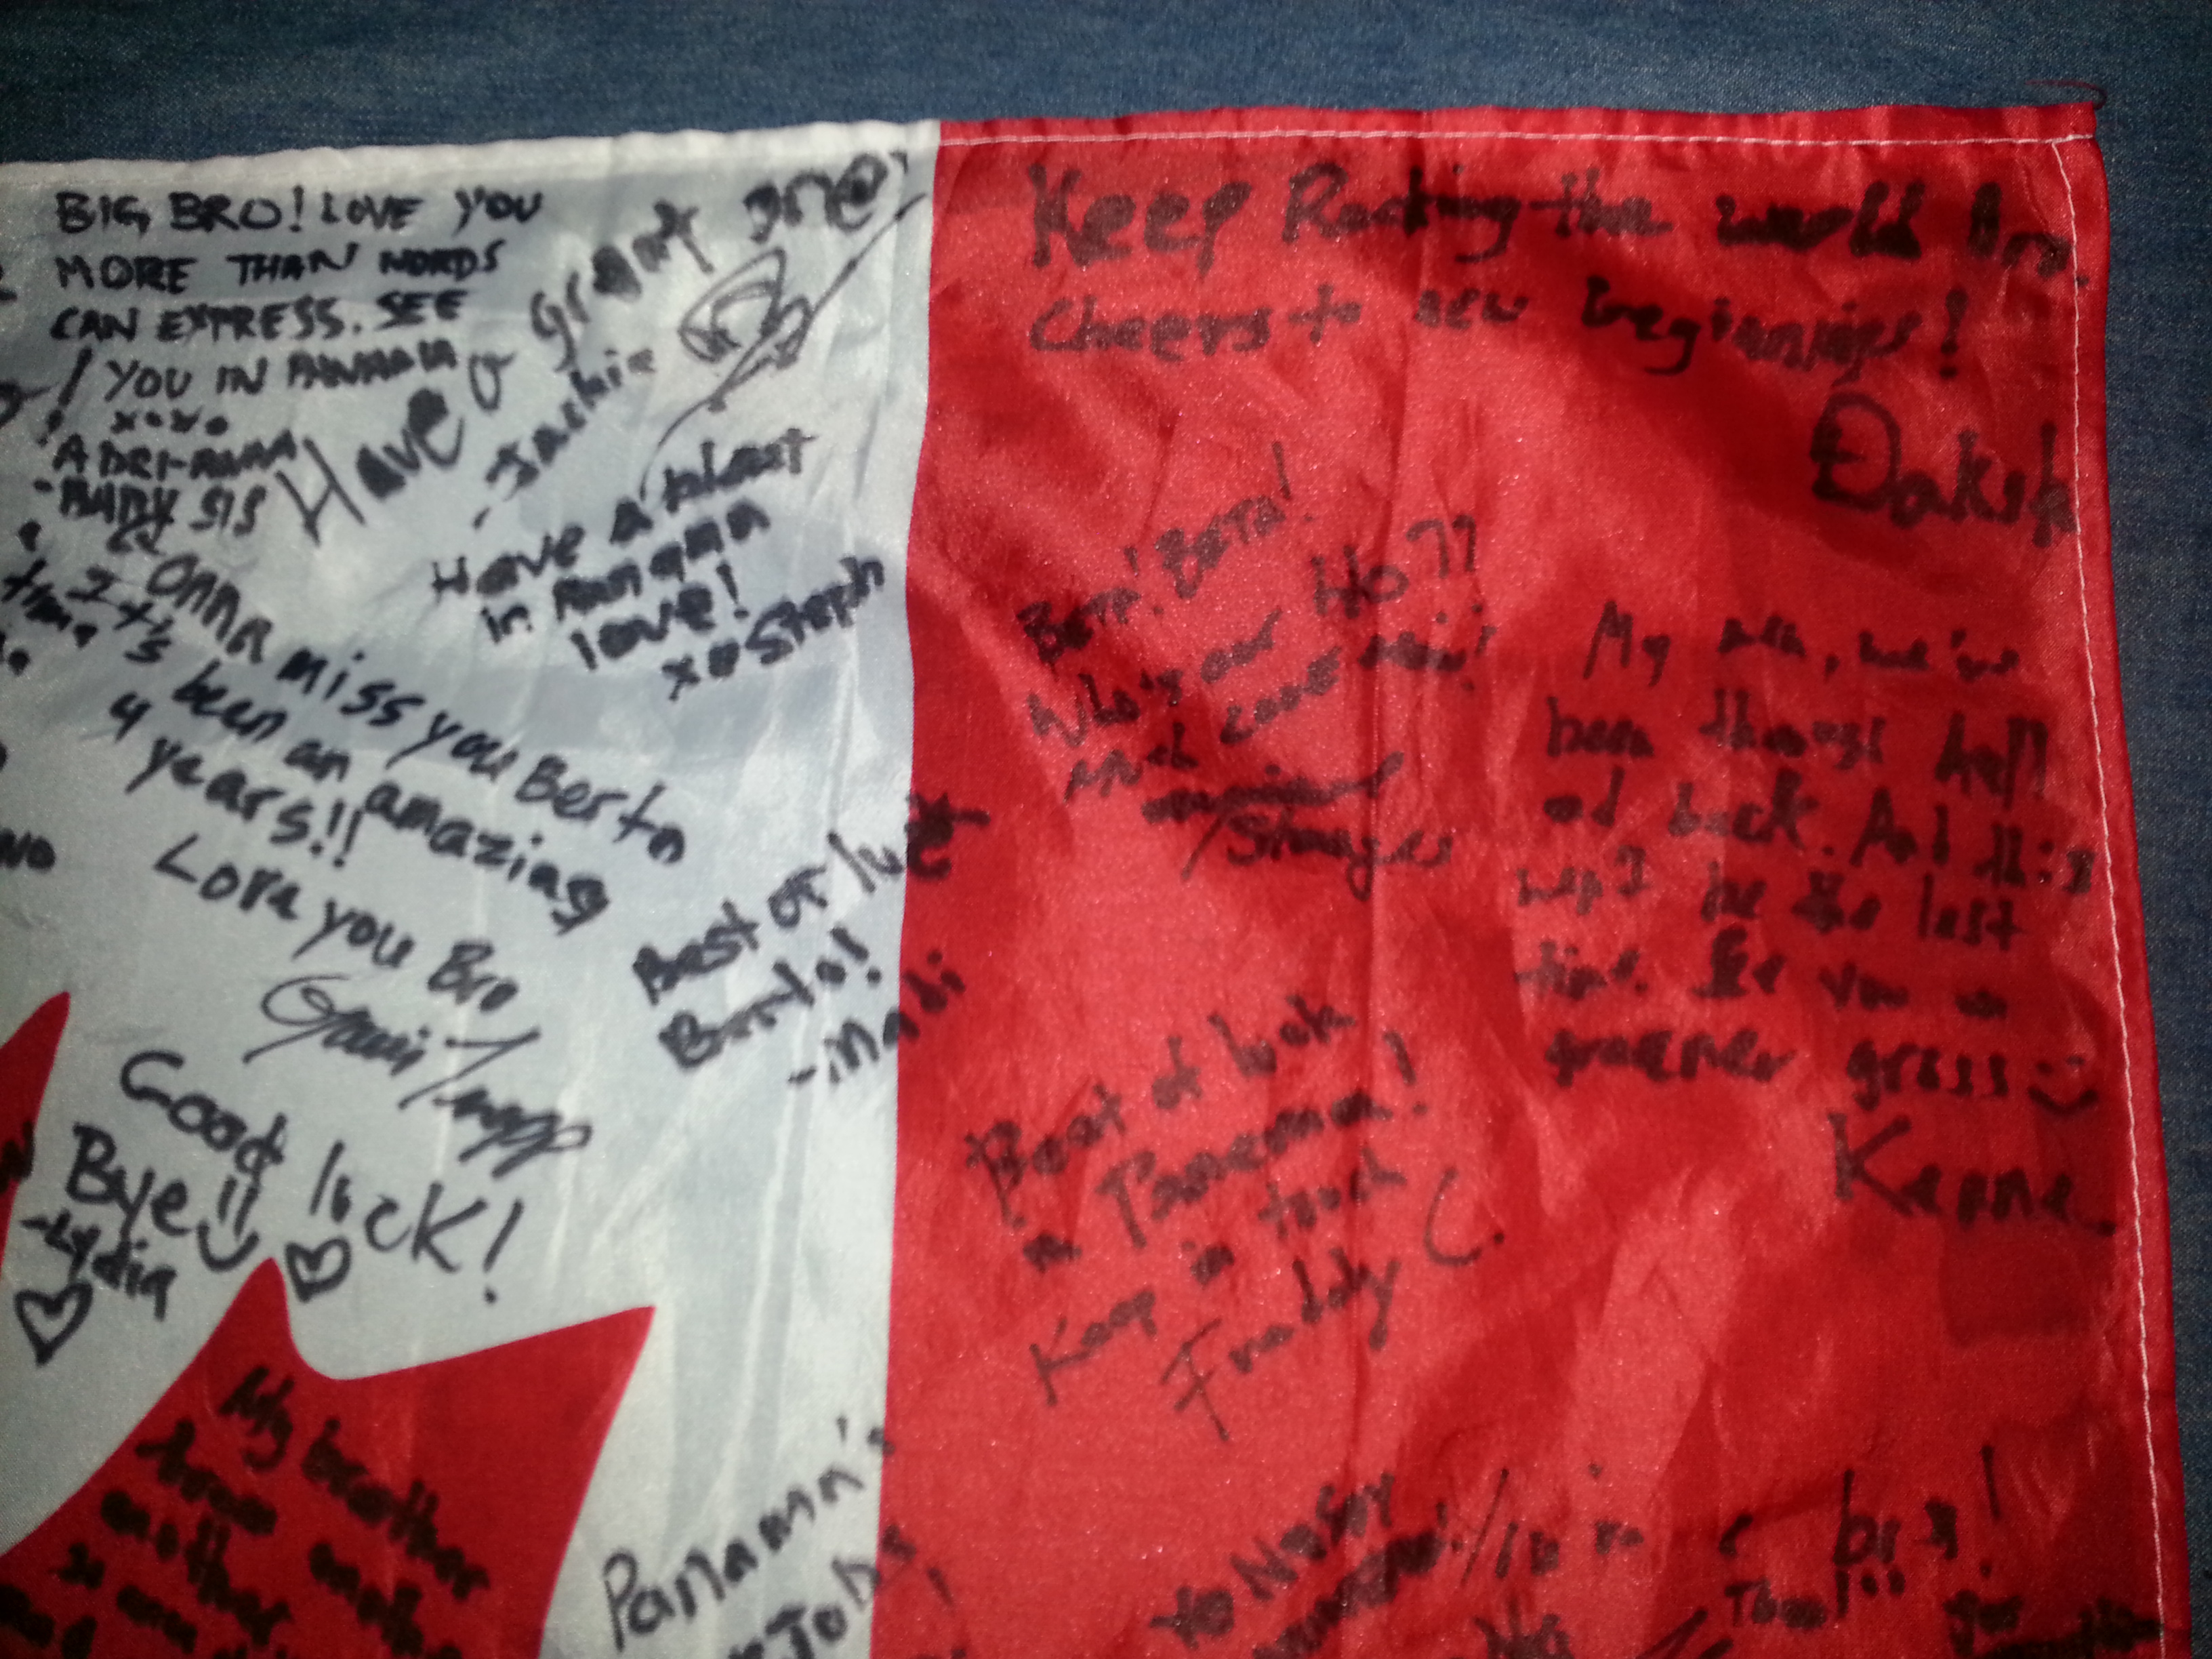 BIG BRO! LOVE YOU
MORE THAN WORDS
CAN EXPRESS. SEE
YOU IN PANAMA
xoxo
ADRI-ANNA
BABY SIS
Have a great one!
- Jackie
Have a blast
in Panama
love!
xoxo Steph
Gonna miss you Berto
It's been an amazing
4 years!!
Love you Bro
Good luck!
Bye!!
-Lydia
Best of luck
Berto!
-Madi
Keep Rocking the world Bro.
Cheers to new beginnings!
Daksh
Beta! Beta!
Who's our Ho??
Much love
My man, we've
been through hell
and back. And this
won't be the last
time. See you on
greener grass
Kenne.
Best of luck
in Panama!
Keep in touch
Freddy C.
My brother
from another
mother
Panama's